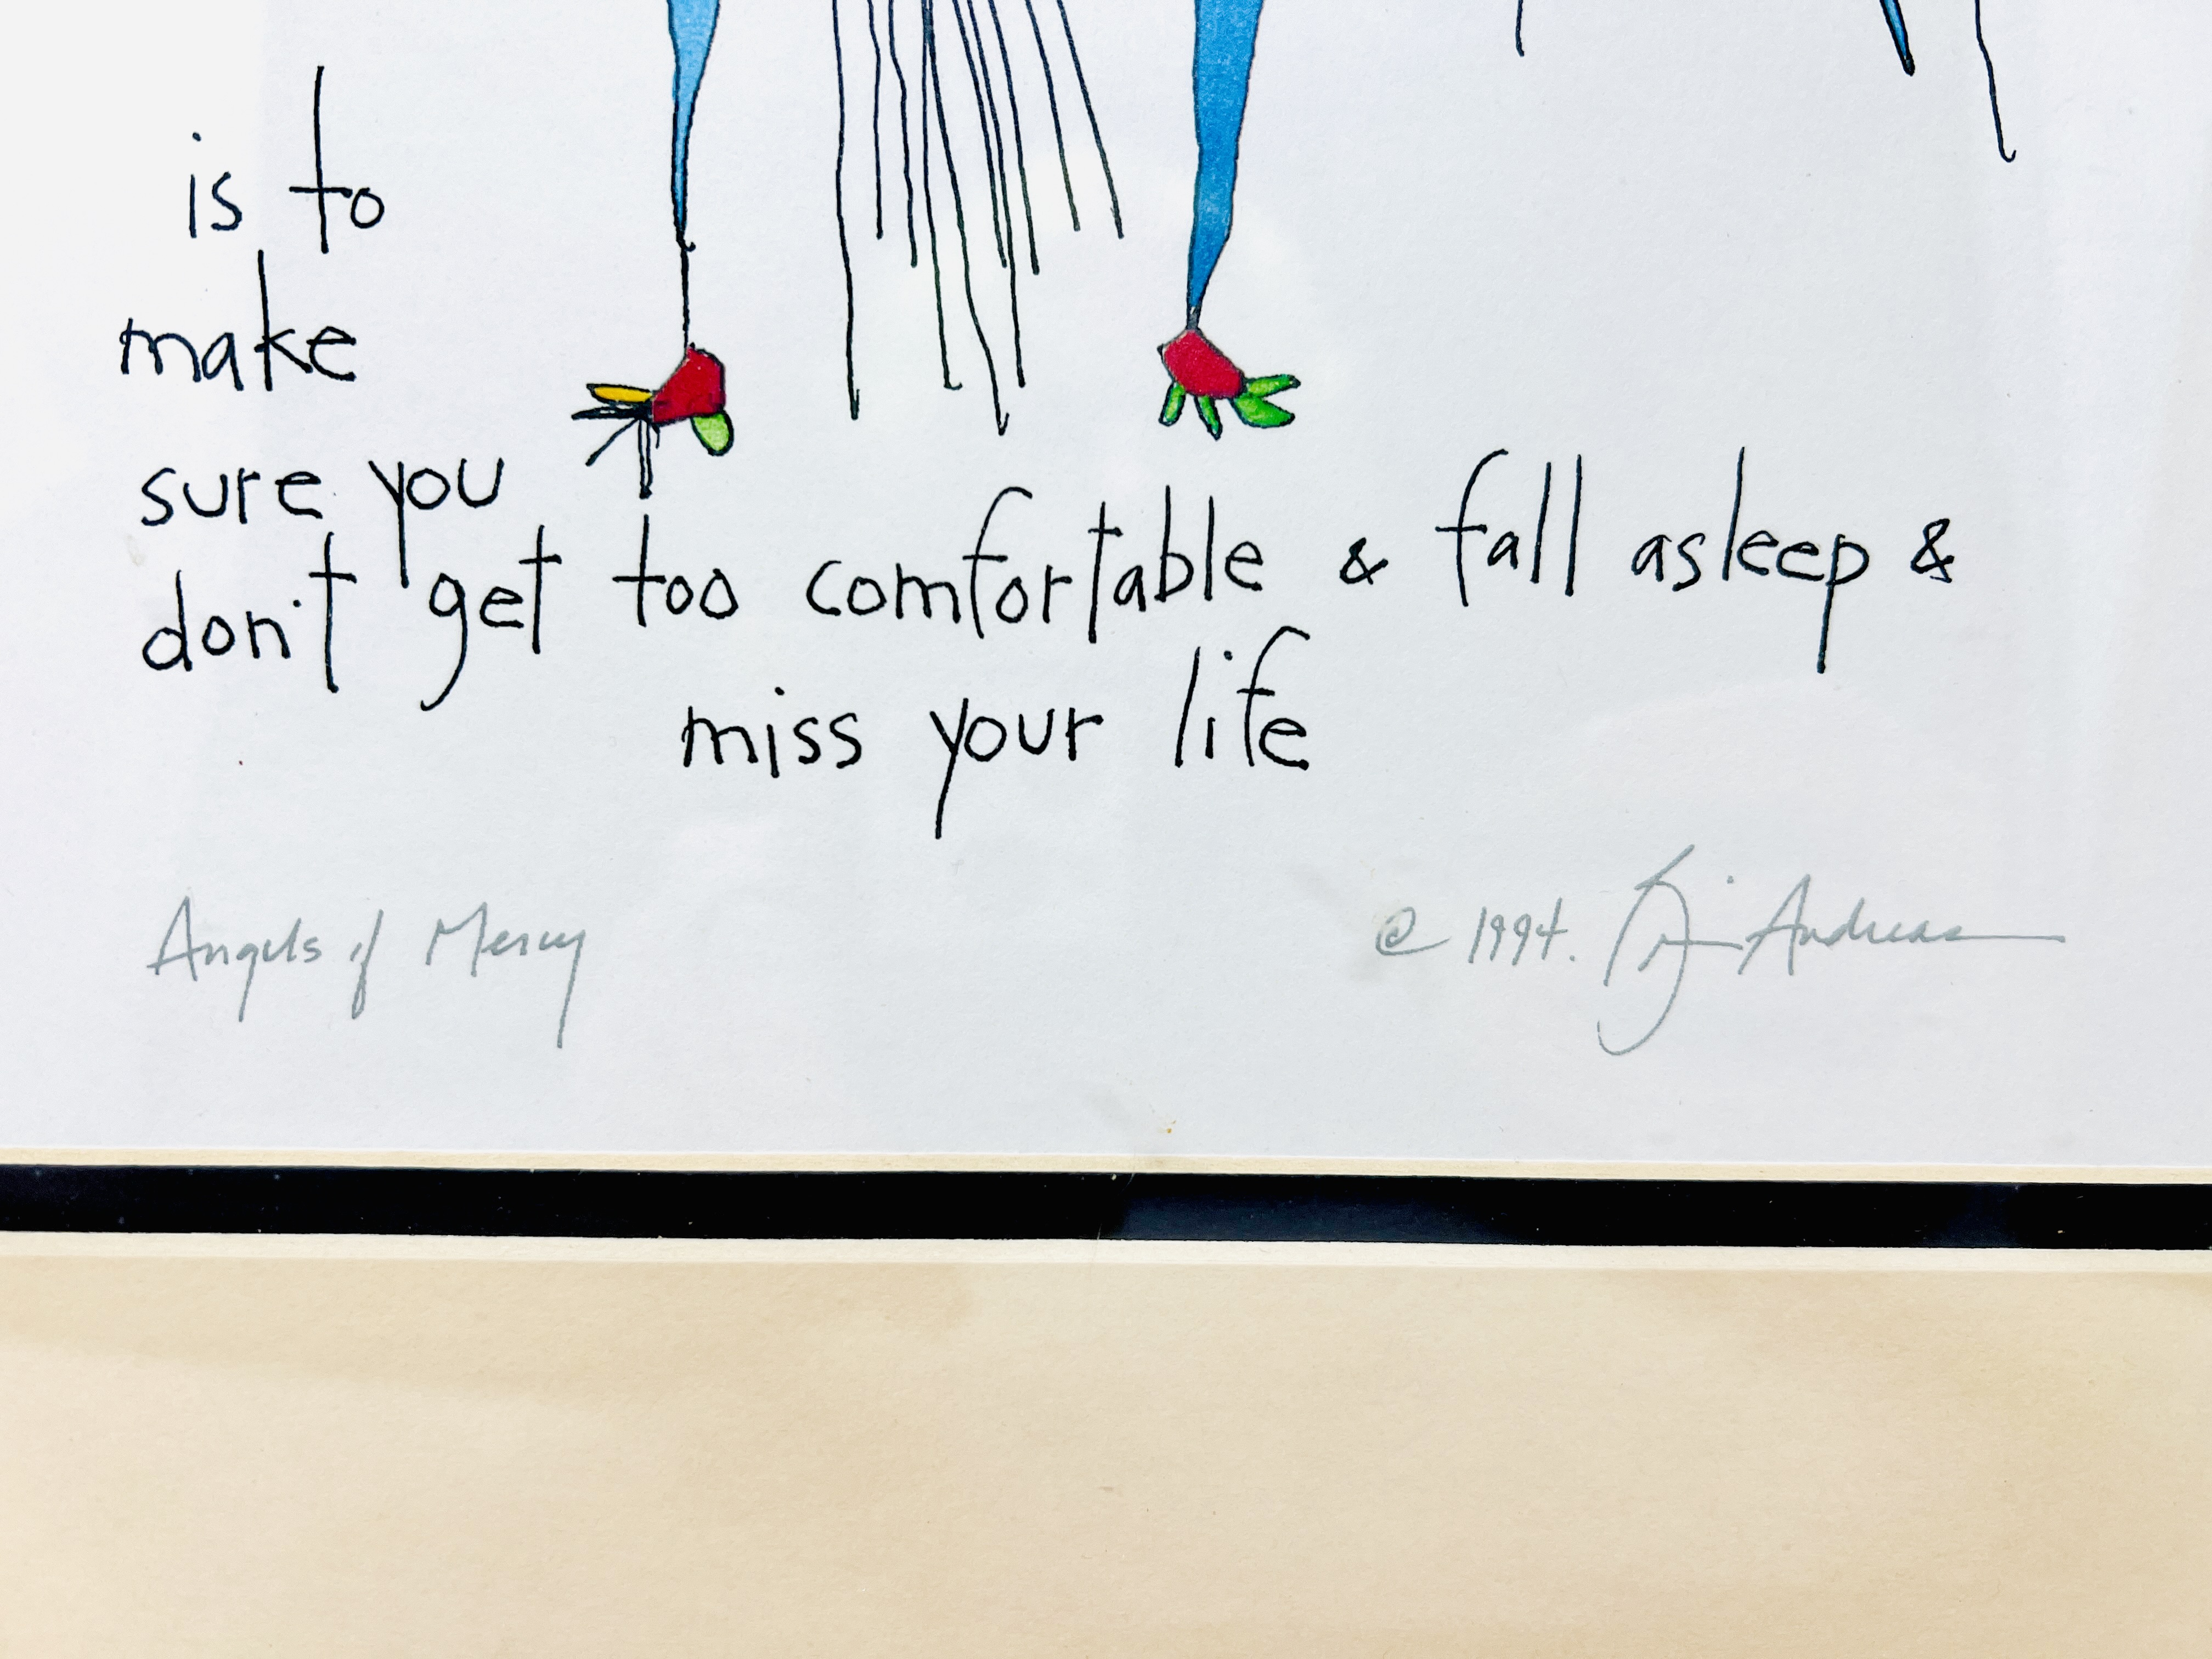 is to
make
sure you
don't get too comfortable & fall asleep &
miss your life
Angels of Mercy
© 1994. Brian Andreas